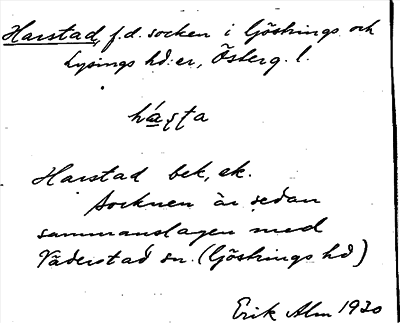 Harstad, f.d. socken i Göstrings och
Lysings hd:er, Österg. l.
Harstad bek, ek.
Socknen är sedan
sammanslagen med
Väderstad sn. (Göstrings hd)
Erik Alm 1930